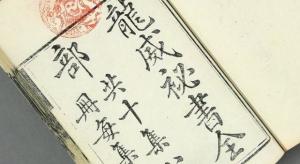 龍威秘書全
共十集
部
冊每集